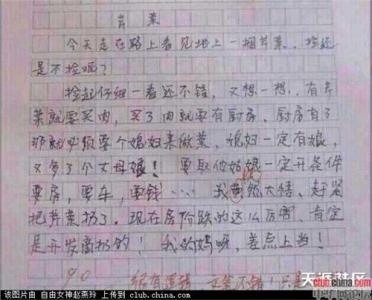 芹菜
今天走在路上看见地上一捆芹菜，捡还
是不捡呢？
捡起仔细一看还不错，又想一想，有芹
菜就要买肉，买了肉就要有厨房，厨房有了
那就必须要个媳妇来做菜，媳妇一定有娘，
又多了个丈母娘！要取他姑娘一定开条件
要房，要车，要钱……我恍然大悟，赶紧
把芹菜扔了。现在房价跌的这么厉害，肯定
是开发商扔的！我的妈呀，差点上当！
90
天涯社区
club.china.com
该图片由 自由女神赵燕玲 上传到 club.china.com